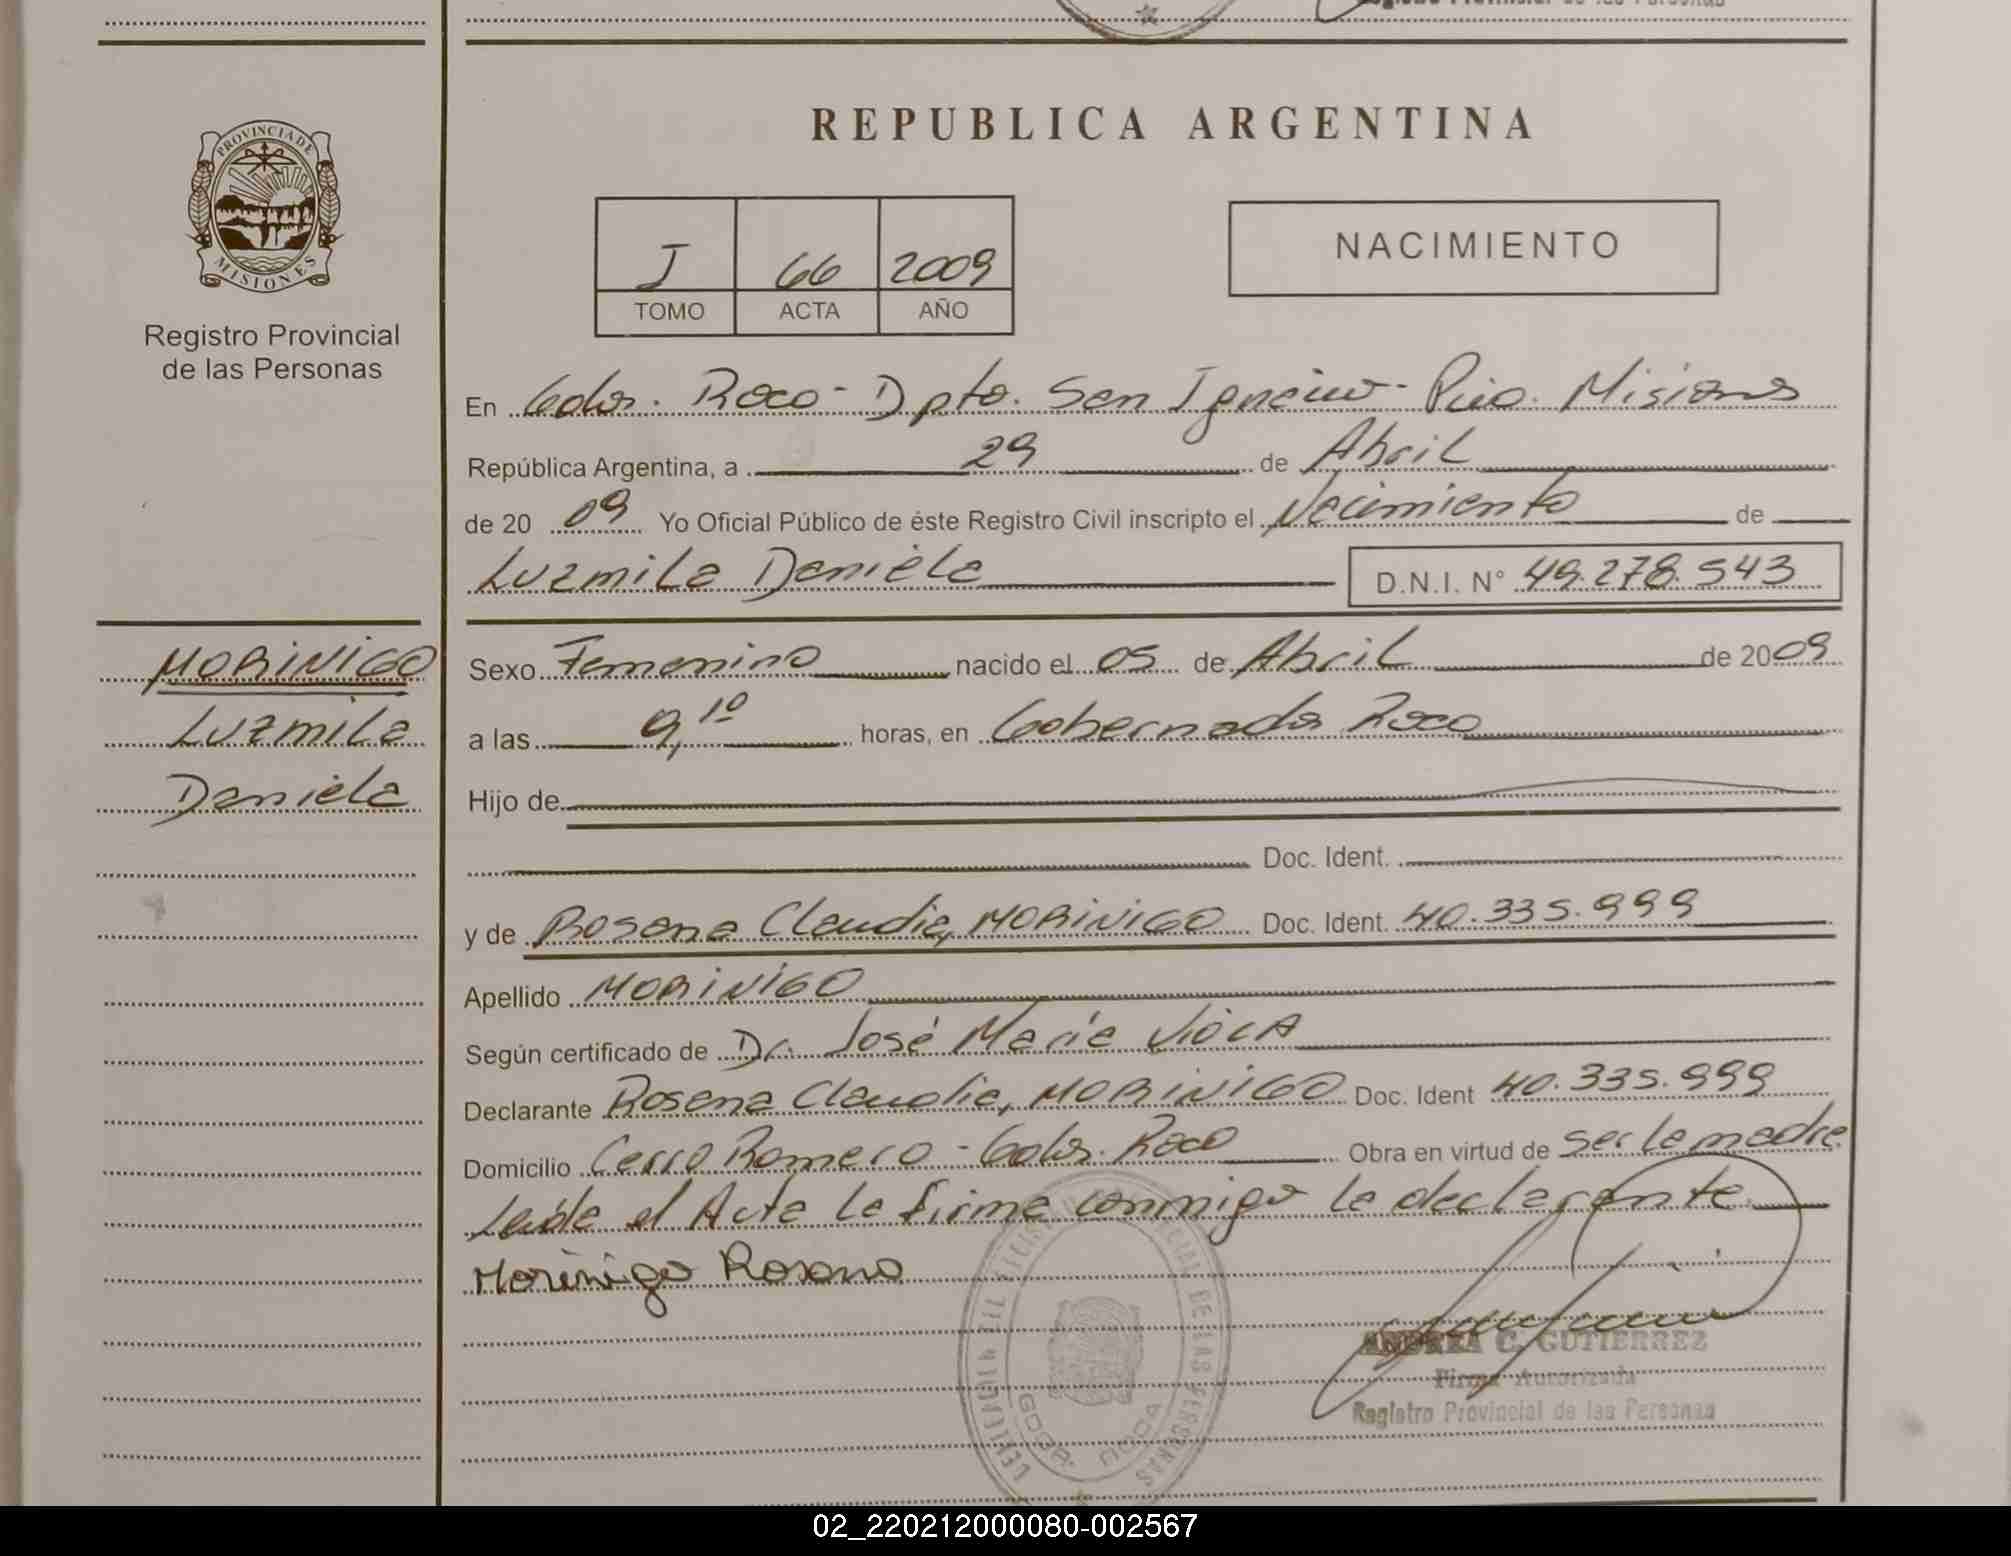 REPUBLICA ARGENTINA
PROVINCIA DE
MISIONES
Registro Provincial
de las Personas
I 66 2009
TOMO ACTA AÑO
NACIMIENTO
En Gdor. Roca - Dpto. San Ignacio - Pcia. Misiones
República Argentina, a 29 de Abril
de 20 09 Yo Oficial Público de éste Registro Civil inscripto el Nacimiento de
Luzmila Daniela D.N.I. N° 49.278.543
MORINIGO
Luzmila
Daniela
Sexo Femenino nacido el 05 de Abril de 2009
a las 9,10 horas, en Gobernador Roca
Hijo de
Doc. Ident.
y de Rosana Claudia, MORINIGO Doc. Ident. 40.335.999
Apellido MORINIGO
Según certificado de Dr. José María VIOLA
Declarante Rosana Claudia, MORINIGO Doc. Ident 40.335.999
Domicilio Cerro Romero - Gdor. Roca Obra en virtud de ser la madre
Leída el Acta la firma conmigo la declarante
Morinigo Rosana
ANDREA C. GUTIERREZ
Firma Autorizada
Registro Provincial de las Personas
02_220212000080-002567